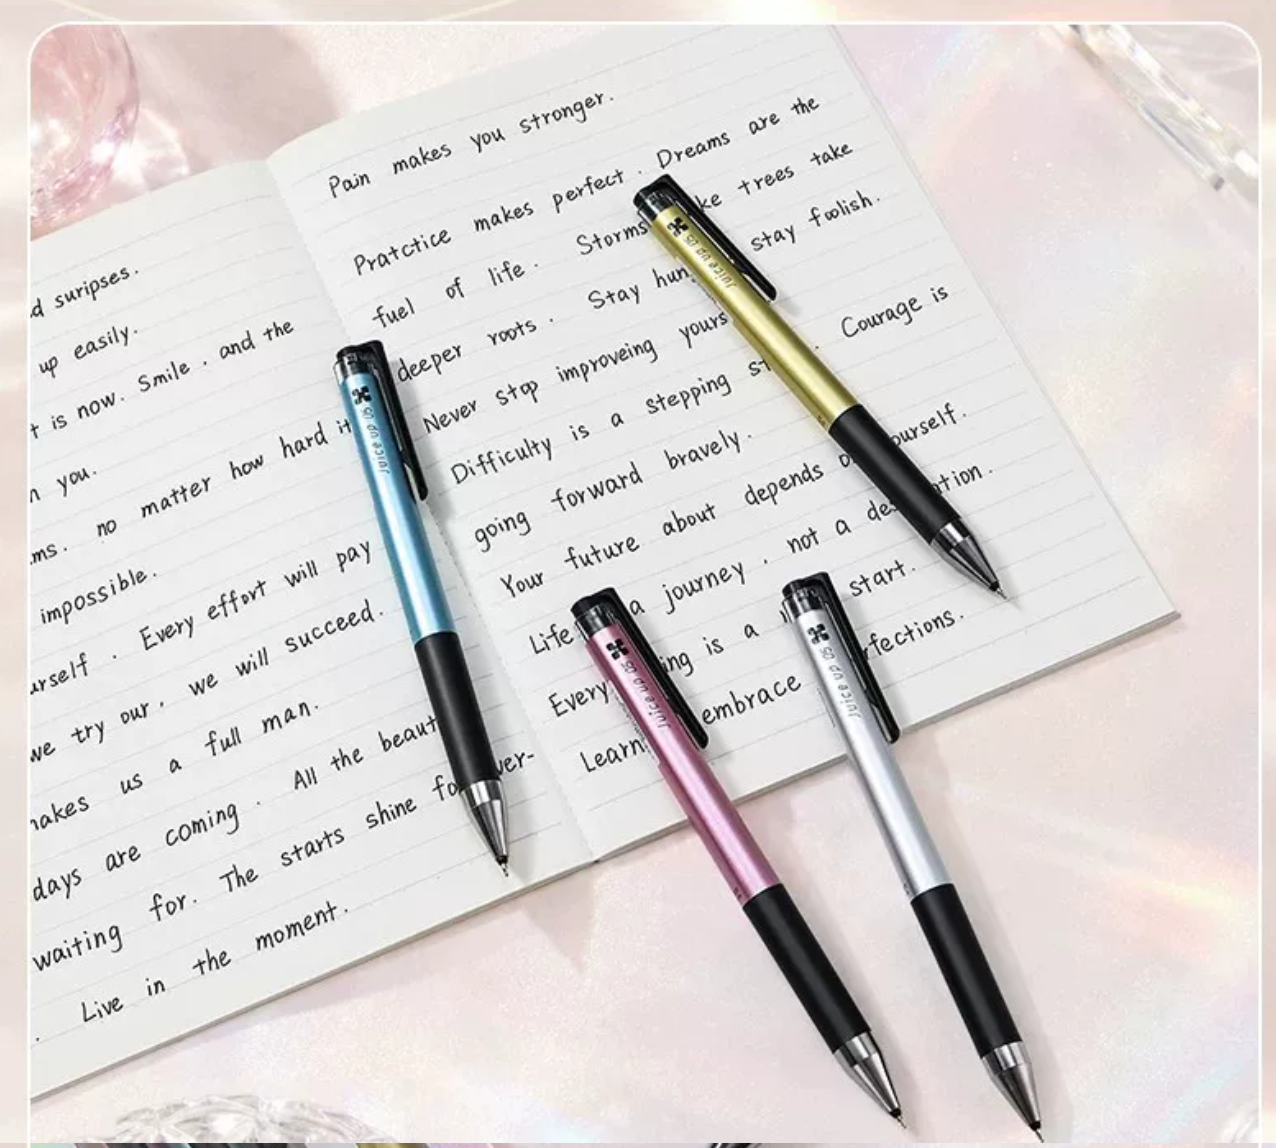 d suripses.
up easily.
is now. Smile . and the
you.
no matter how hard it
impossible.
Every effort will pay
we try our, we will succeed.
us a full man.
days are coming . All the beaut
waiting for. The starts shine for ver-
. Live in the moment.
Pain makes you stronger.
Pratctice makes perfect . Dreams are the
fuel of life . Storms trees take
deeper roots . Stay stay foolish.
Never stop improveing yours
Difficulty is a stepping st . Courage is
going forward bravely.
Your future about depends ourself.
Life a journey . not a des ation.
Every ng is a start.
Learn embrace rfections.
Juice up 05
Juice up 05
Juice up 05
Juice up 05